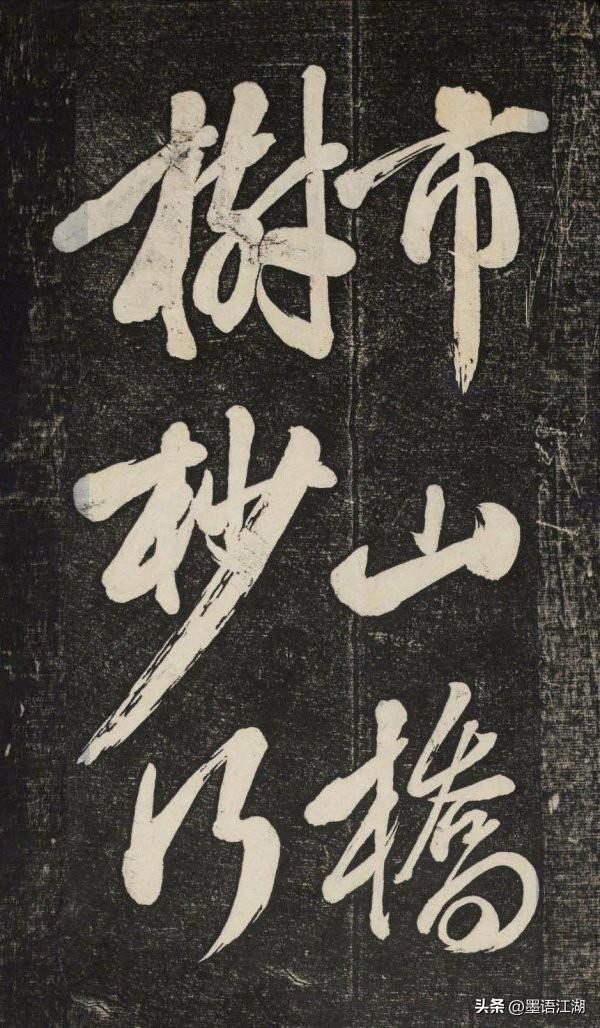 市山橋
樹杪行
头条 @墨语江湖